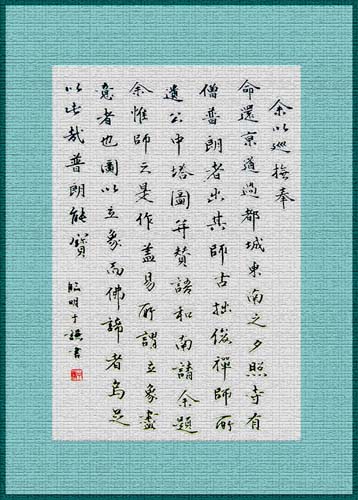 余以巡撫奉
命還京道過都城東南之夕照寺有
僧普朗者出其師古拙俊禪師所
遺公中塔圖并贊語和南請余題
余惟師云是作盖易所謂立象盡
意者也圖以立象而佛諦者烏足
以此哉普朗能寶
明于謙書